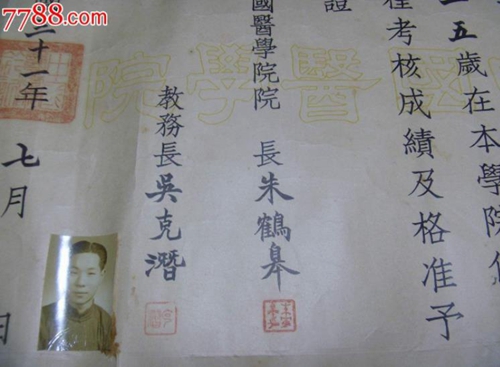 7788.com
五歲在本學院修
程考核成績及格准予
證
國醫學院院長朱鶴皋
教務長吳克潛
二十一年七月日
國醫學院